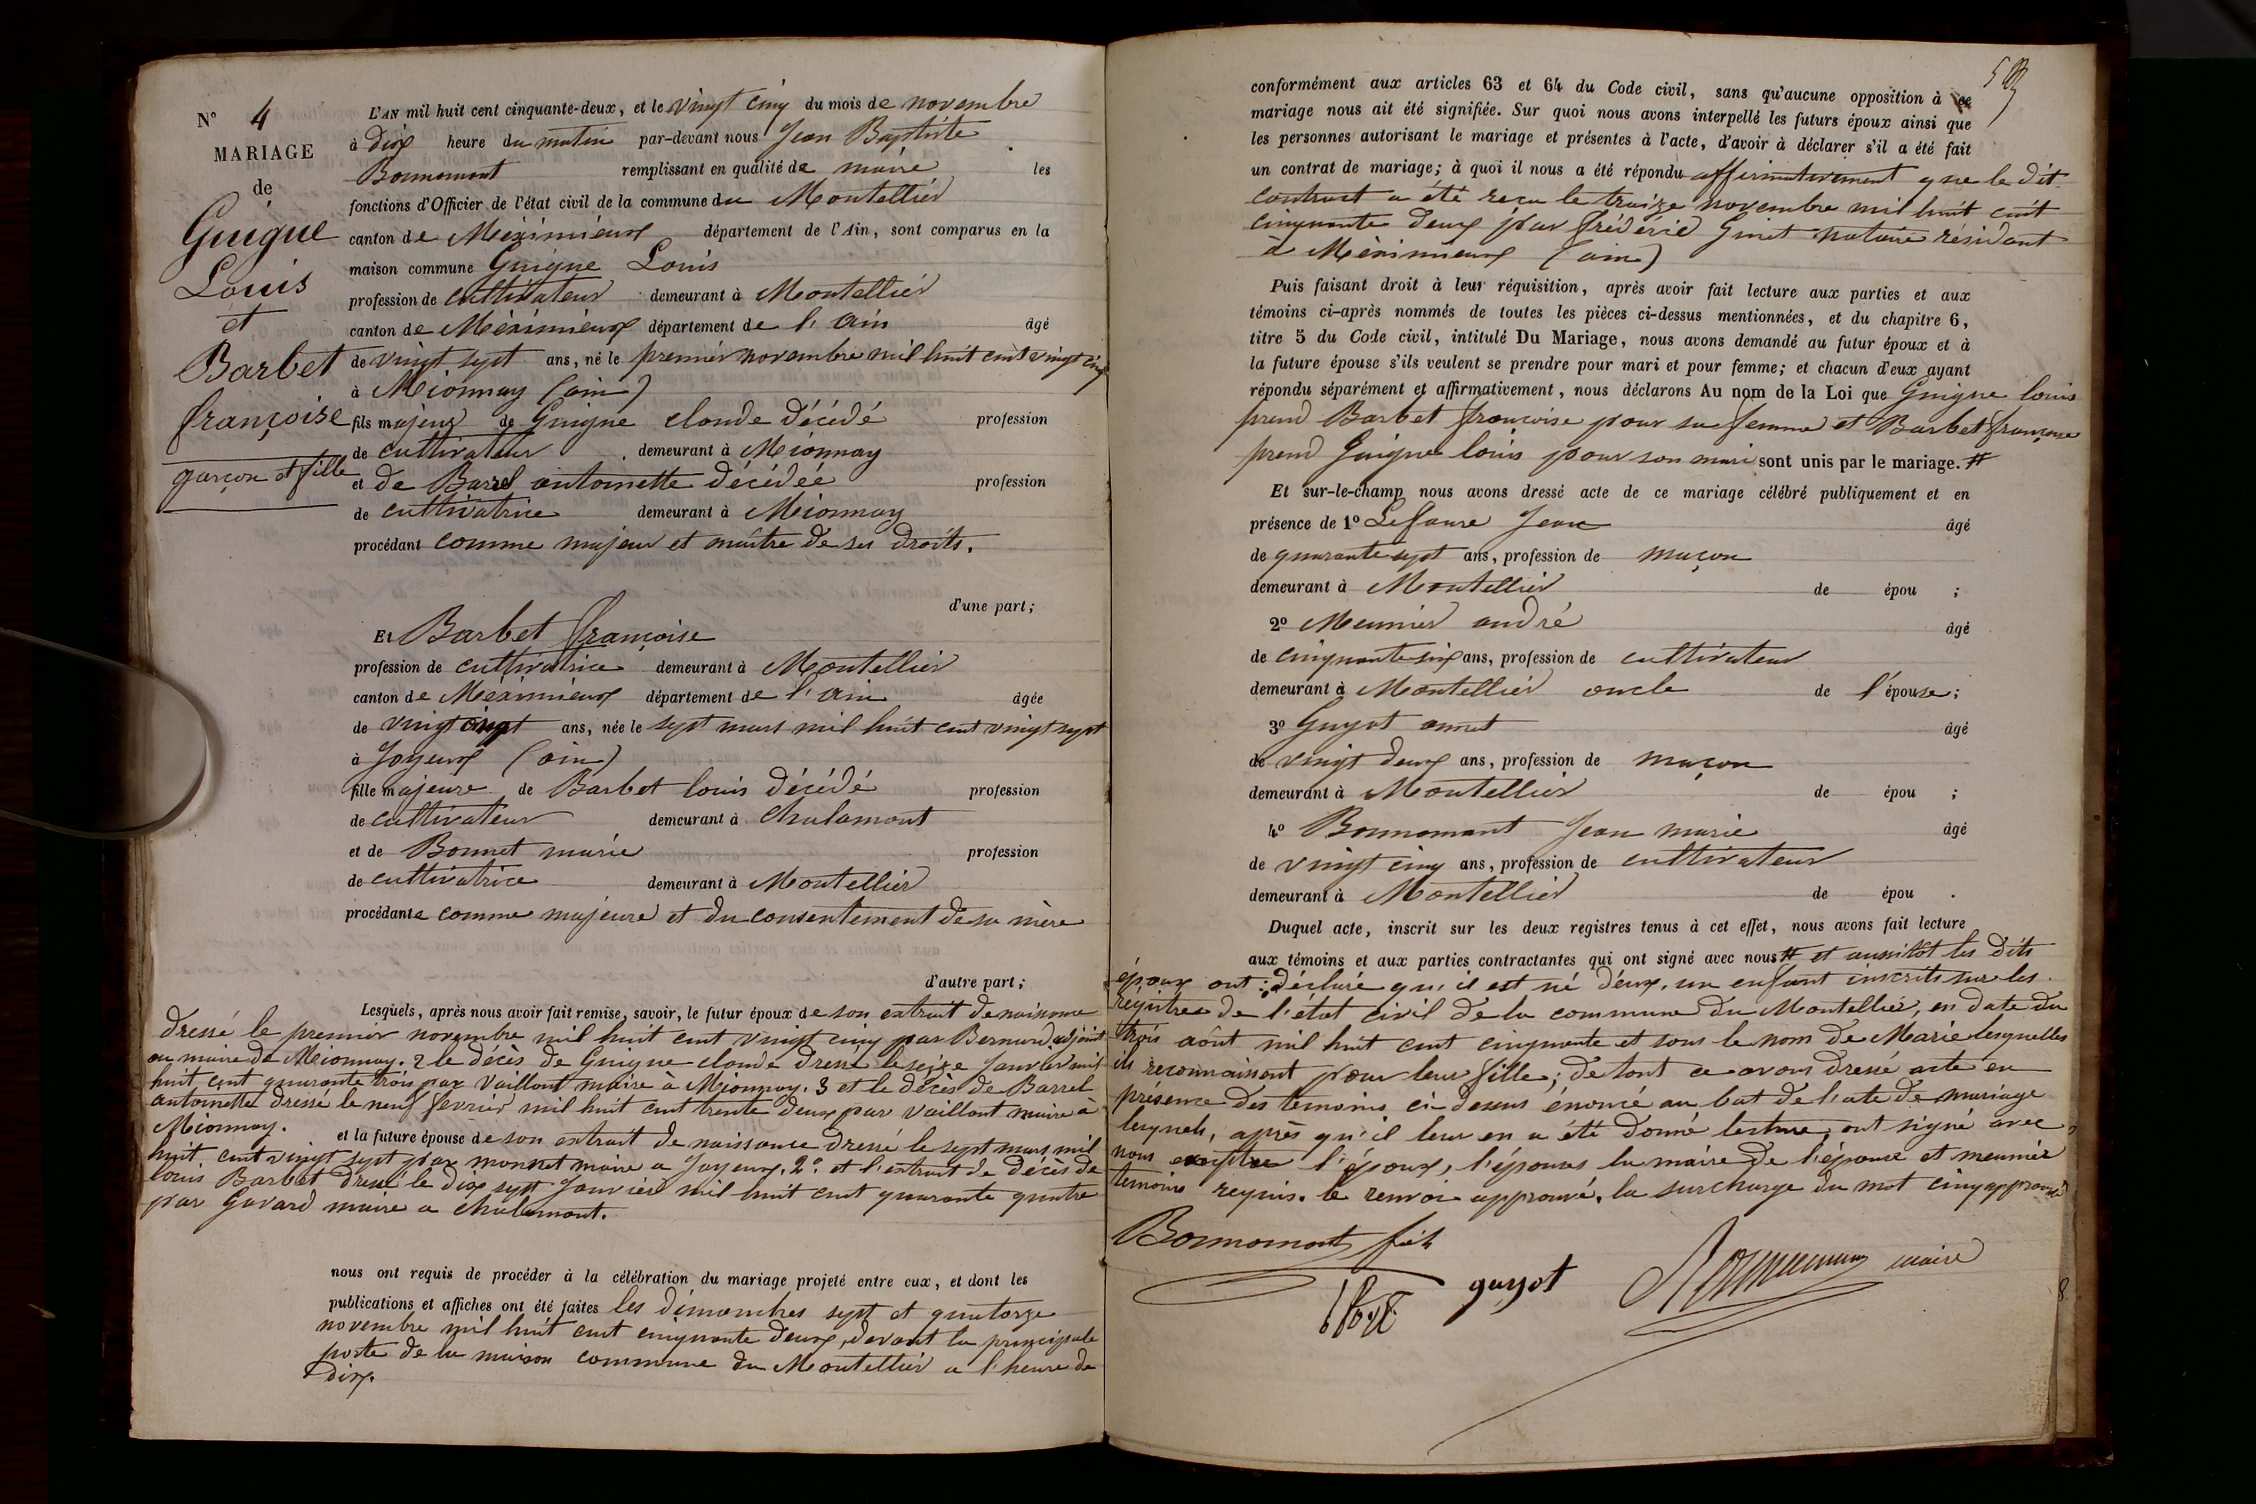 N° 4
MARIAGE
de
Guigue
Louis
et
Barbet
françoise
garçon et fille
L'AN mil huit cent cinquante-deux, et le vingt cinq du mois de novembre
à dix heure du matin par-devant nous Jean Baptiste
Bonnemont remplissant en qualité de maire les
fonctions d'Officier de l'état civil de la commune du Montellier
canton de Méximieux département de l'Ain, sont comparus en la
maison commune Guigue Louis
profession de cultivateur demeurant à Montellier
canton de Méximieux département de l'ain âgé
de vingt sept ans, né le premier novembre mil huit cent vingt cinq
à Mionnay (ain)
fils majeur de Guigue claude décédé profession
de cultivateur demeurant à Mionnay
et de Barrel antoinette décédée profession
de cultivatrice demeurant à Mionnay
procédant comme majeur et maître de ses droits.
d'une part;
Et Barbet françoise
profession de cultivatrice demeurant à Montellier
canton de Méximieux département de l'ain âgée
de vingt cinq ans, née le sept mars mil huit cent vingt sept
à Joyeux (ain)
fille majeure de Barbet louis décédé profession
de cultivateur demeurant à chalamont
et de Bonnet marie profession
de cultivatrice demeurant à Montellier
procédante comme majeure et du consentement de sa mère
d'autre part;
Lesquels, après nous avoir fait remise, savoir, le futur époux de son extrait de naissance
dressé le premier novembre mil huit cent vingt cinq par Bernard adjoint
au maire de Mionnay. 2 le décès de Guigue claude dressé le seize Janvier mil
huit cent quarante trois par Vaillant maire à Mionnay. 3 et le décès de Barrel
antoinette dressé le neuf fevrier mil huit cent trente deux par Vaillant maire à
Mionnay. et la future épouse de son extrait de naissance dressé le sept mars mil
huit cent vingt sept par monnet maire a Joyeux, 2° et l'extrait de décès de
louis Barbet dressé le dix sept Janvier mil huit cent quarante quatre
par Gavard maire a chalamont.
nous ont requis de procéder à la célébration du mariage projeté entre eux, et dont les
publications et affiches ont été faites les dimanches sept et quatorze
novembre mil huit cent cinquante deux, devant la principale
porte de la maison commune du Montellier a l'heure de
dix.
conformément aux articles 63 et 64 du Code civil, sans qu'aucune opposition à ce
mariage nous ait été signifiée. Sur quoi nous avons interpellé les futurs époux ainsi que
les personnes autorisant le mariage et présentes à l'acte, d'avoir à déclarer s'il a été fait
un contrat de mariage; à quoi il nous a été répondu affirmativement que le dit
contract a été reçu le treize novembre mil huit cent
cinquante deux par frédéric Ginet notaire résidant
a Méximieux (ain)
Puis faisant droit à leur réquisition, après avoir fait lecture aux parties et aux
témoins ci-après nommés de toutes les pièces ci-dessus mentionnées, et du chapitre 6,
titre 5 du Code civil, intitulé Du Mariage, nous avons demandé au futur époux et à
la future épouse s'ils veulent se prendre pour mari et pour femme; et chacun d'eux ayant
répondu séparément et affirmativement, nous déclarons Au nom de la Loi que Guigue louis
prend Barbet françoise pour sa femme et Barbet françoise
prend Guigue louis pour son mari sont unis par le mariage. #
Et sur-le-champ nous avons dressé acte de ce mariage célébré publiquement et en
présence de 1° Lefaure Jean âgé
de quarante sept ans, profession de maçon
demeurant à Montellier de épou ;
2° Meunier andré âgé
de cinquante six ans, profession de cultivateur
demeurant à Montellier oncle de l'épouse;
3° Guyot âgé
de vingt deux ans, profession de maçon
demeurant à Montellier de épou ;
4° Bonnemant Jean marie âgé
de vingt cinq ans, profession de cultivateur
demeurant à Montellier de épou .
Duquel acte, inscrit sur les deux registres tenus à cet effet, nous avons fait lecture
aux témoins et aux parties contractantes qui ont signé avec nous # et aussitôt les dits
époux ont déclaré qu'il est né d'eux, un enfant inscrits sur les
registres de l'état civil de la commune du Montellier, en date du
trois août mil huit cent cinquante et sous le nom de Marie lesquelles
ils reconnaissent pour leur fille; de tout ce avons dressé acte en
présence des temoins ci-dessus énoncé au bat de l'ate de mariage
lesquels, après qu'il leur en a été donné lecture, ont signé avec
nous excepter l'époux, l'épouses la maire de l'épouse et meunier
temoins requis. le renvoi approuvé. la surcharge du mot cinq approuvé
Bonnomont fils
guyot
maire